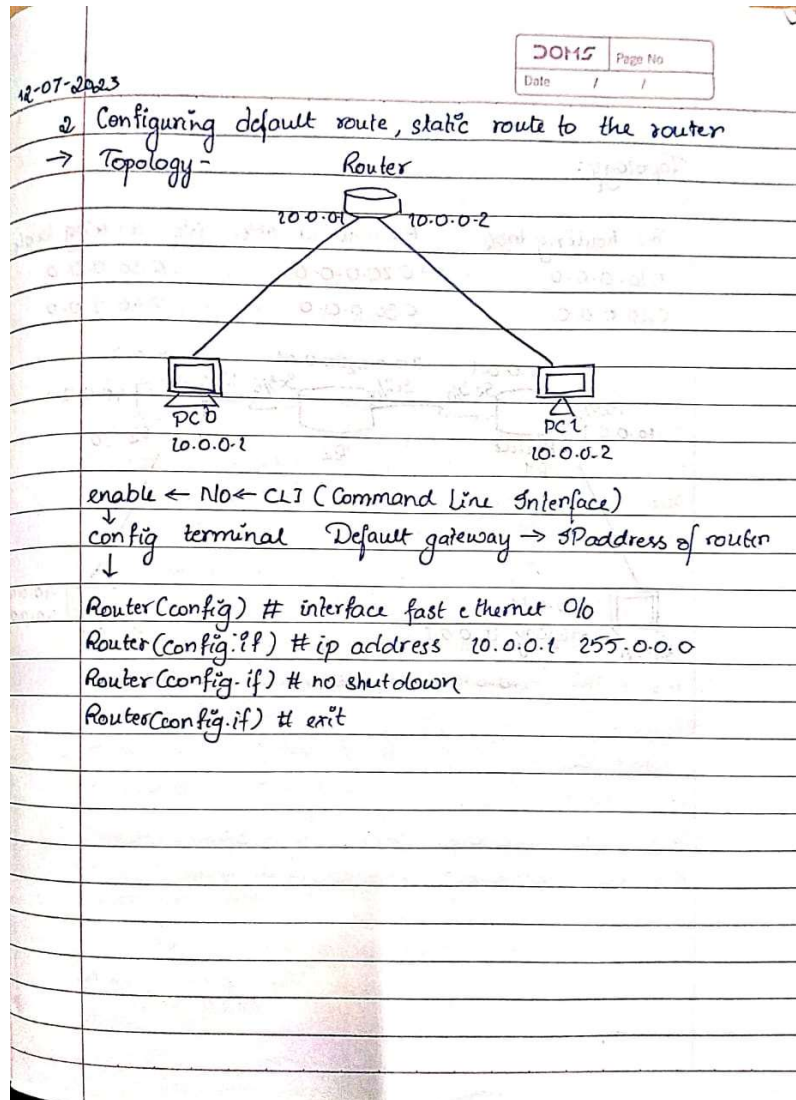 DOMS Page No
Date / /
12-07-2023
2 Configuring default route, static route to the router
→ Topology -
Router
10.0.01 10.0.0.2
PC0 PC1
10.0.0.1 10.0.0.2
enable ← No ← CLI (Command Line Interface)
↓
config terminal Default gateway → IPaddress of router
↓
Router(config) # interface fast ethernet 0/0
Router(config.if) # ip address 10.0.0.1 255.0.0.0
Router(config.if) # no shutdown
Router(config.if) # exit